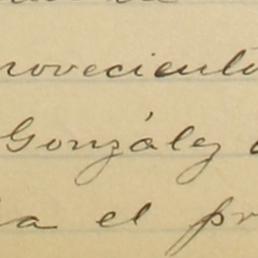 novecient
González
a el pr